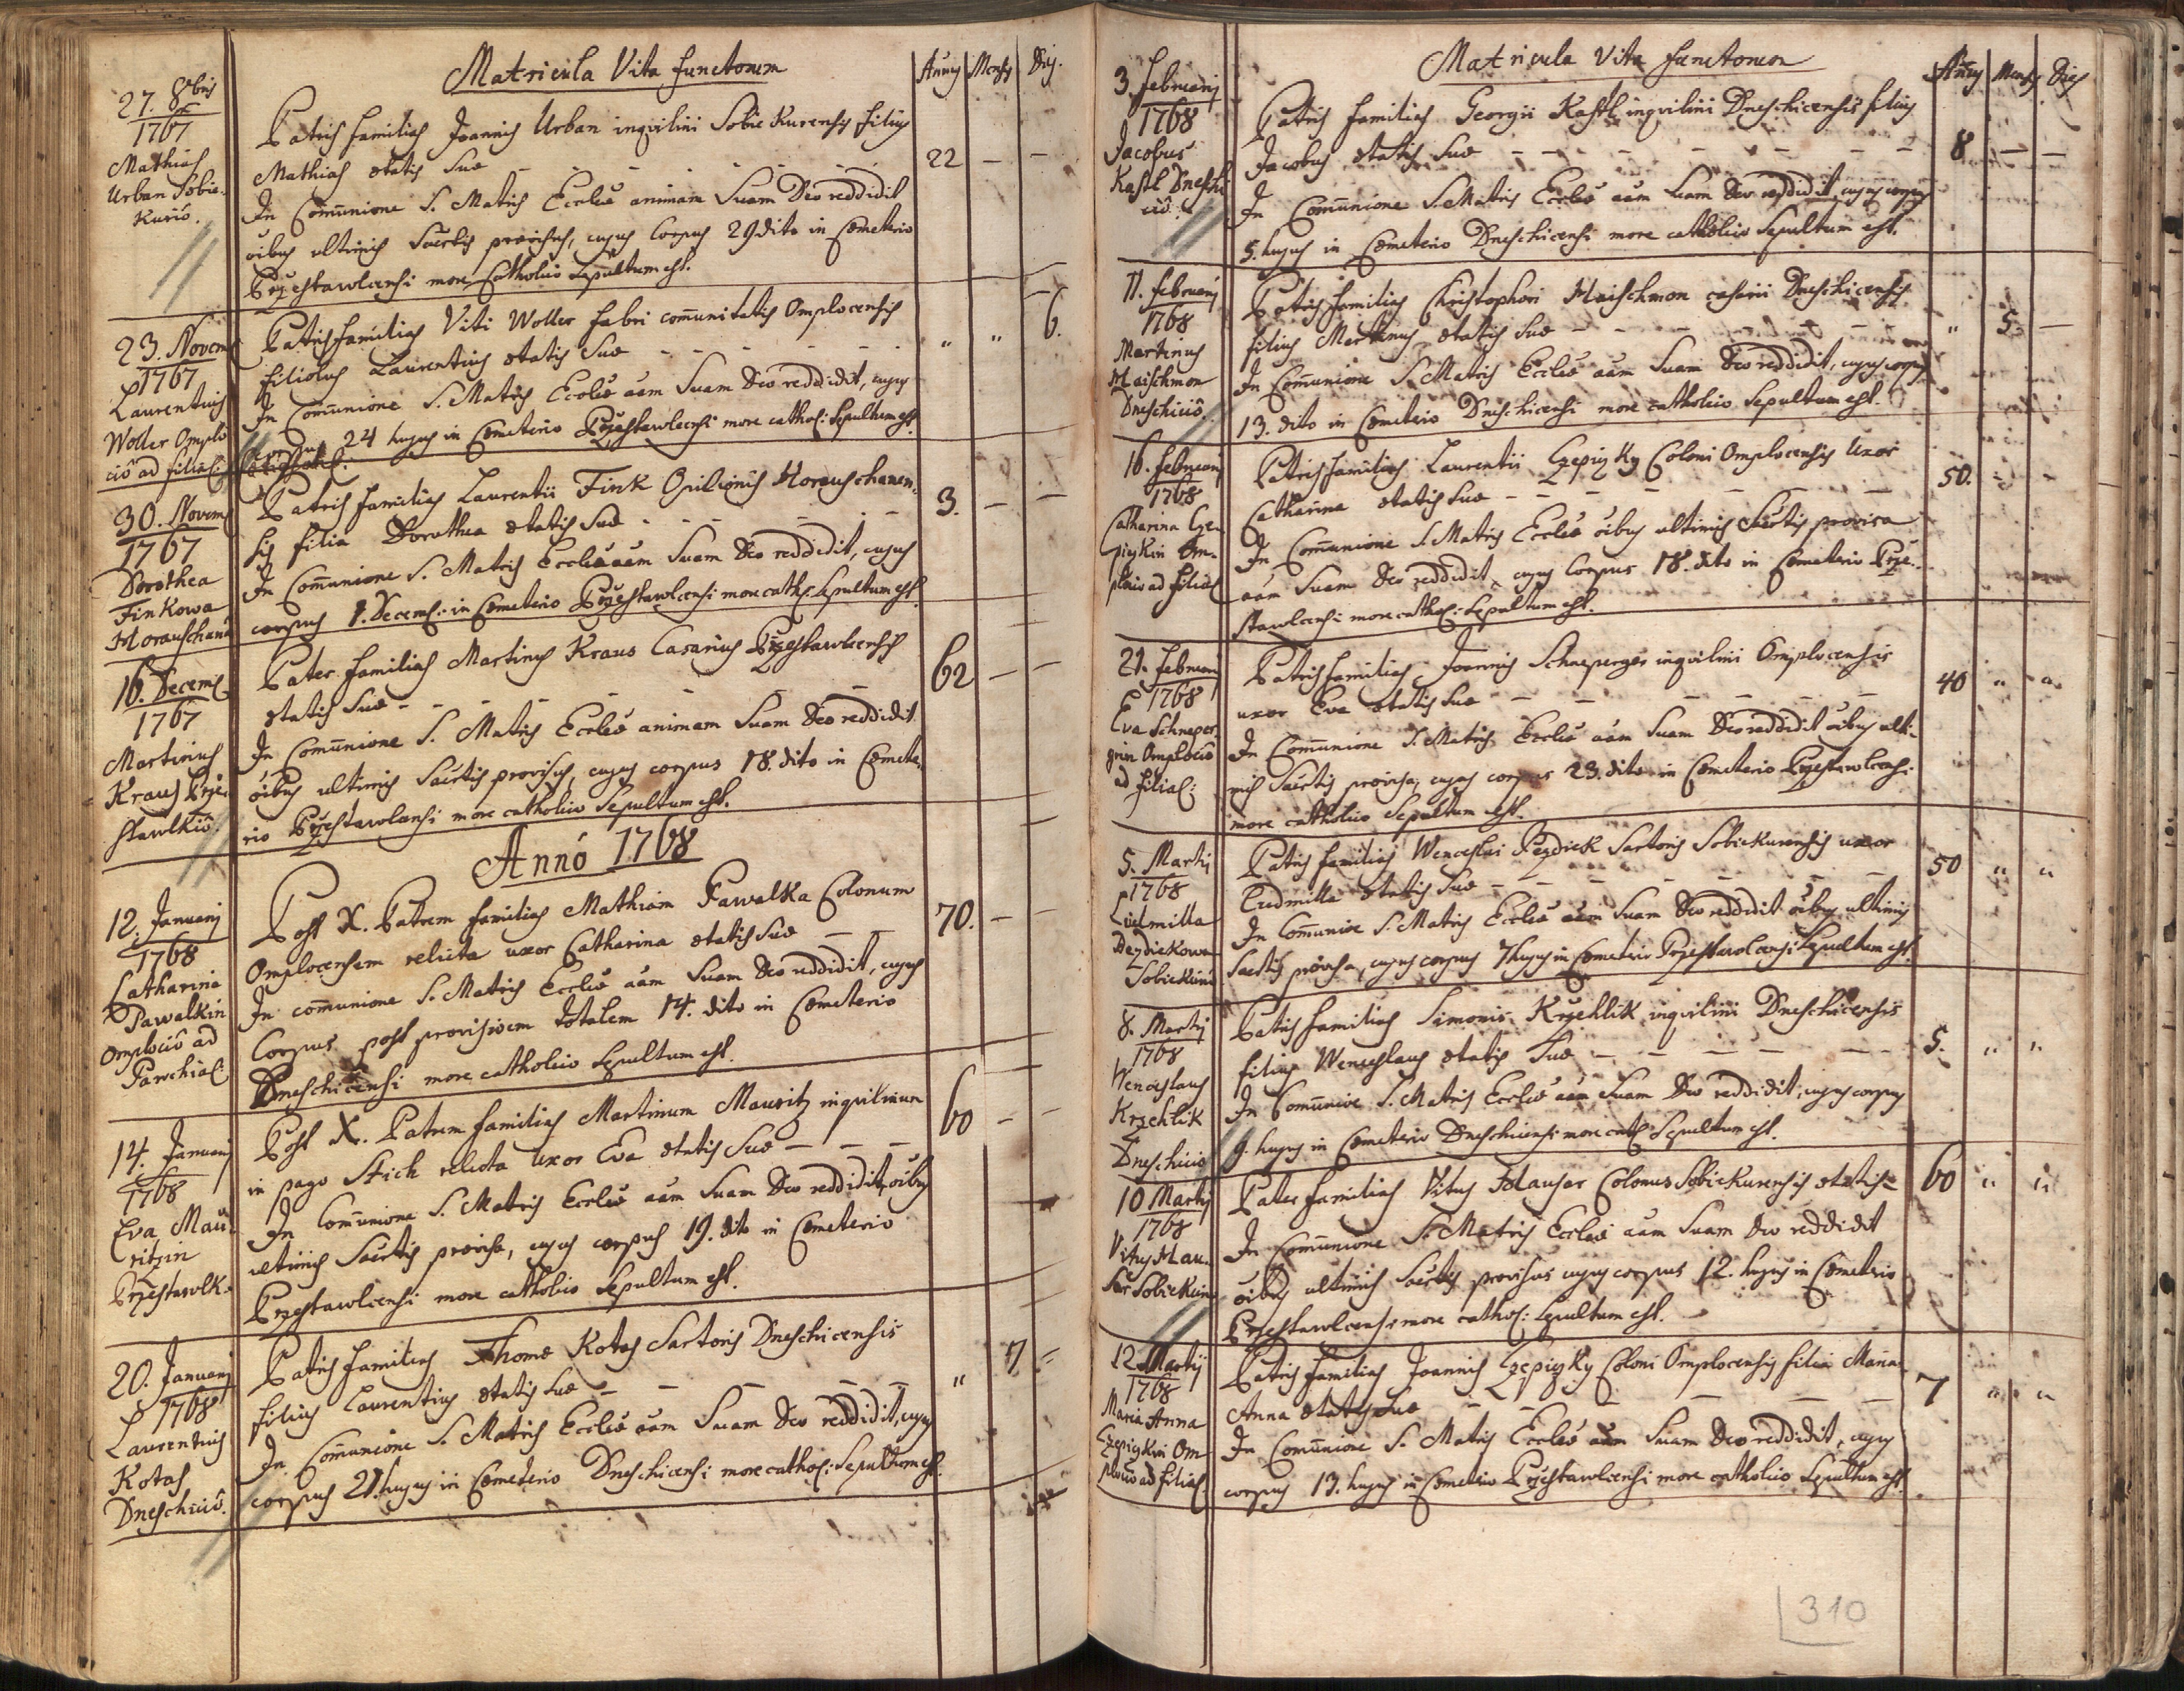 Matricula Vita functorum
Annj Mensj Diej
27. 8bris
1767
Mathias
Urban Sobie-
kuriô.
Patris familias Joannis Urban inqvilini Sobiekurensis filius
Mathias ætatis suæ - - - - 22 - -
In Com̄unione S. Matris Eccl̄iæ animam Suam Deo reddidit
oībus ultimis Sac̄rtis provisus, cujus Corpus 29 dito in Cœmeterio
Przestawlcensi more Catholico Sepultum est.
23. Novem:
1767
Laurentius
Woller Omplo
ciô ad filial:
Patrisfamilias Viti Woller fabri com̄unitatis Omplocensis
filiolus Laurentius ætatis Suæ - - - - - " " 6.
In Com̄unione S. Matris Eccl̄iæ āam Suam Deo reddidit, cujus
corpus 24 hujus in Cœmeterio Przestawlcensi more cathol: Sepultum est.
30. Novem:
1767
Dorothea
Finkowa
Horauschanâ
Patris familias Laurentii Fink Opilionis Horauschanen-
sis filia Dorothea ætatis Suæ - - - - 3. - -
In Com̄unione S. Matris Eccl̄iæ āam Suam Deo reddidit, cujus
corpus 1. Decem: in Cœmeterio Przestawlcensi more cath: Sepultum est.
16. Decem:
1767
Martinus
Kraus Prze-
stawlkiô.
Pater familias Martinus Kraus Casarius Przestawlcensis
ætatis Suæ - - - - - 62 - -
In Com̄unione S. Matris Eccl̄iæ animam Suam Deo reddidit
oībus ultimis Sac̄rtis provisus, cujus corpus 18. dito in Cœmete-
rio Przestawlcensi more catholico Sepultum est.
Annô 1768
12. Januarij
1768
Catharina
Pawalkin
Omplociô ad
Parochial:
Post X. Patrem familias Mathiam Pawalka Colonum
Omplocensem relicta uxor Catharina ætatis Suæ - - 70. - -
In com̄unione S. Matris Eccl̄iæ āam Suam Deo reddidit, cujus
Corpus post provisionem totalem 14. dito in Cœmeterio
Dneschicensi more catholico Sepultum est.
14. Januarij
1768
Eva Mau-
ritzin
Przestawlk.
Post X. Patrem familias Martinum Mauritz inqvilinum
in pago Stich relicta Uxor Eva ætatis Suæ - - - 60 - -
In Com̄unione S. Matris Eccl̄iæ āam Suam Deo reddidit, oībus
ultimis Sac̄rtis provisa, cujus corpus 19. dito in Cœmeterio
Przestawlcensi more catholico Sepultum est.
20. Januarij
1768
Laurentius
Kotas
Dneschiciô.
Patris familias Thomæ Kotas Sartoris Dneschicensis
filius Laurentius ætatis Suæ - - - - - " 17 =
In Com̄unione S. Matris Eccl̄iæ āam Suam Deo reddidit, cujus
corpus 21. hujus in Cœmeterio Dneschicensi more cathol: Sepultum est.
Matricula Vita functorum
Annj Mensj Diej
3. Februarij
1768
Jacobus
Kastl Dneschi
ciô.
Patris familias Georgii Kastl inqvilini Dneschicensis filius
Jacobus ætatis Suæ - - - - - - - 8 - -
In Com̄unione S. Matris Eccl̄iæ āam Suam Deo reddidit, cujus corpus
5. hujus in Cœmeterio Dneschicensi more catholico Sepultum est.
11. Februarij
1768
Martinus
Haischmon
Dneschiciô.
Patris familias Christophori Haischmon casarii Dneschicensis
filius Martinus ætatis Suæ - - - - - " 5. -
In Com̄unione S. Matris Eccl̄iæ āam Suam Deo reddidit, cujus corpus
13. dito in Cœmeterio Dneschicensi more catholico Sepultum est.
16. Februarij
1768
Catharina Cze-
pizkin Om-
plociô ad filial:
Patrisfamilias Laurentii Czepizky Coloni Omplocensis Uxor
Catharina ætatis Suæ - - - - - - 50. - -
In Com̄unione S. Matris Eccl̄iæ oībus ultimis Sac̄rtis provisa
āam Suam Deo reddidit, cujus Corpus 18. dito in Cœmeterio Prze-
stawlcensi more cathol: Sepultum est.
21. Februarij
1768
Eva Schneper-
grin Omplociô
ad filial:
Patrisfamilias Joannis Schneperger inqvilini Omplocensis
uxor Eva ætatis Suæ - - - - - 40 " "
In Com̄unione S. Matris Eccl̄iæ āam Suam Deo reddidit oībus ulti-
mis Sac̄rtis provisa, cujus corpus 23. dito in Cœmeterio Przestawlcensi
more catholico Sepultum est.
5. Martij
1768
Ludmilla
Dezdiekowa
Sobiekuriô
Patris familias Wenceslai Dezdiek Sartoris Sobiekurensis uxor
Ludmilla ætatis Suæ - - - - - - 50 " "
In Com̄unioe S. Matris Eccl̄iæ āam Suam Deo reddidit oībus ultimis
Sac̄rtis provisa, cujus corpus 7 hujus in Cœmeterio Przestawlcensi Sepultum est.
8. Martij
1768
Wenceslaus
Krzehlik
Dneschiciô
Patris familias Simonis Krzehlik inqvilini Dneschicensis
filius Wenceslaus ætatis Suæ - - - - - 5. " "
In Com̄unioe S. Matris Eccl̄iæ āam Suam Deo reddidit, cujus corpus
9. hujus in Cœmeterio Dneschicensi more cath: Sepultum est.
10 Martij
1768
Vitus Hau-
ser Sobiekuriô
Pater familias Vitus Hauser Colonus Sobiekurensis ætatis 60 " "
In Com̄unione S. Matris Eccl̄iæ āam Suam Deo reddidit
oībus ultimis Sac̄rtis provisus cujus corpus 12. hujus in Cœmeterio
Przestawlcensi more cathol: Sepultum est.
12. Martij
1768
Maria Anna
Czepizkin Om
plociô ad filial:
Patris familias Joannis Czepizky Coloni Omplocensis filia Maria
Anna ætatis Suæ - - - - - - 7 " "
In Com̄unione S. Matris Eccl̄iæ āam Suam Deo reddidit, cujus
corpus 13. hujus in Cœmeterio Przestawlcensi more catholico Sepultum est.
310